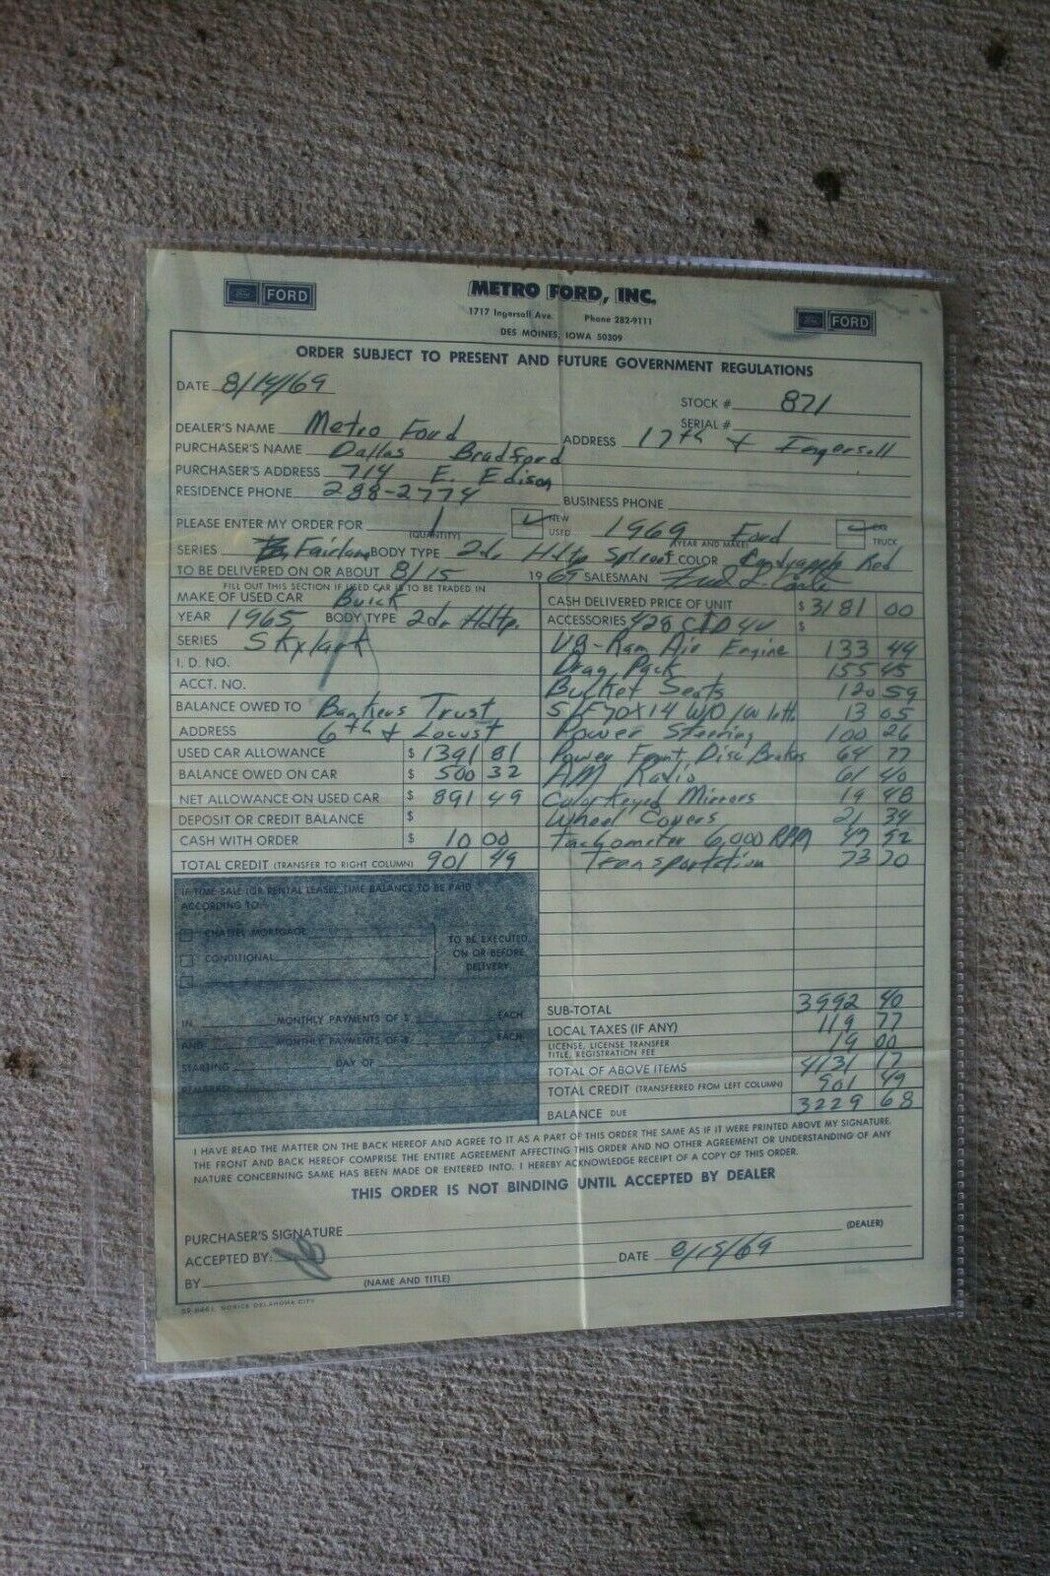 FORD
METRO FORD, INC.
1717 Ingersoll Ave. Phone 282-9111
DES MOINES, IOWA 50309
FORD
ORDER SUBJECT TO PRESENT AND FUTURE GOVERNMENT REGULATIONS
DATE 8/14/69
STOCK # 871
SERIAL #
DEALER'S NAME Metro Ford ADDRESS 17th & Ingersoll
PURCHASER'S NAME Dallas Bradford
PURCHASER'S ADDRESS 714 E. Edison
RESIDENCE PHONE 288-2774 BUSINESS PHONE
PLEASE ENTER MY ORDER FOR 1 (QUANTITY) NEW USED 1969 Ford (YEAR AND MAKE) CAR TRUCK
SERIES Fairlane BODY TYPE 2dr Hdtp Sptroof COLOR Candyapple Red
TO BE DELIVERED ON OR ABOUT 8/15 1969 SALESMAN
FILL OUT THIS SECTION IF USED CAR IS TO BE TRADED IN
MAKE OF USED CAR Buick
YEAR 1965 BODY TYPE 2dr Hdtp.
SERIES Skylark
I. D. NO.
ACCT. NO.
BALANCE OWED TO Bankers Trust
ADDRESS 6th & Locust
USED CAR ALLOWANCE $ 1391 81
BALANCE OWED ON CAR $ 500 32
NET ALLOWANCE ON USED CAR $ 891 49
DEPOSIT OR CREDIT BALANCE $
CASH WITH ORDER $ 10 00
TOTAL CREDIT (TRANSFER TO RIGHT COLUMN) 901 49
CASH DELIVERED PRICE OF UNIT $ 3181 00
ACCESSORIES 428 CID 4V $
V8-Ram Air Engine 133 44
Drag Pack 155 45
Bucket Seats 120 59
5/F70x14 WO/W lett 13 05
Power Steering 100 26
Power Front Disc Brakes 64 77
AM Radio 61 40
Coly Keyed Mirrors 19 48
Wheel Covers 21 34
Tachometer 6,000 RPM 47 92
Transportation 73 20
IF TIME SALE (OR RENTAL LEASE), TIME BALANCE TO BE PAID
ACCORDING TO:
CHATTEL MORTGAGE
CONDITIONAL
TO BE EXECUTED
ON OR BEFORE
DELIVERY
IN MONTHLY PAYMENTS OF $ EACH
AND MONTHLY PAYMENTS OF $ EACH
STARTING DAY OF
REMARKS:
SUB-TOTAL 3992 40
LOCAL TAXES (IF ANY) 119 77
LICENSE, LICENSE TRANSFER
TITLE, REGISTRATION FEE 19 00
TOTAL OF ABOVE ITEMS 4131 17
TOTAL CREDIT (TRANSFERRED FROM LEFT COLUMN) 901 49
BALANCE DUE 3229 68
I HAVE READ THE MATTER ON THE BACK HEREOF AND AGREE TO IT AS A PART OF THIS ORDER THE SAME AS IF IT WERE PRINTED ABOVE MY SIGNATURE.
THE FRONT AND BACK HEREOF COMPRISE THE ENTIRE AGREEMENT AFFECTING THIS ORDER AND NO OTHER AGREEMENT OR UNDERSTANDING OF ANY
NATURE CONCERNING SAME HAS BEEN MADE OR ENTERED INTO. I HEREBY ACKNOWLEDGE RECEIPT OF A COPY OF THIS ORDER.
THIS ORDER IS NOT BINDING UNTIL ACCEPTED BY DEALER
PURCHASER'S SIGNATURE
(DEALER)
ACCEPTED BY: DATE 8/15/69
BY (NAME AND TITLE)
OKLAHOMA CITY